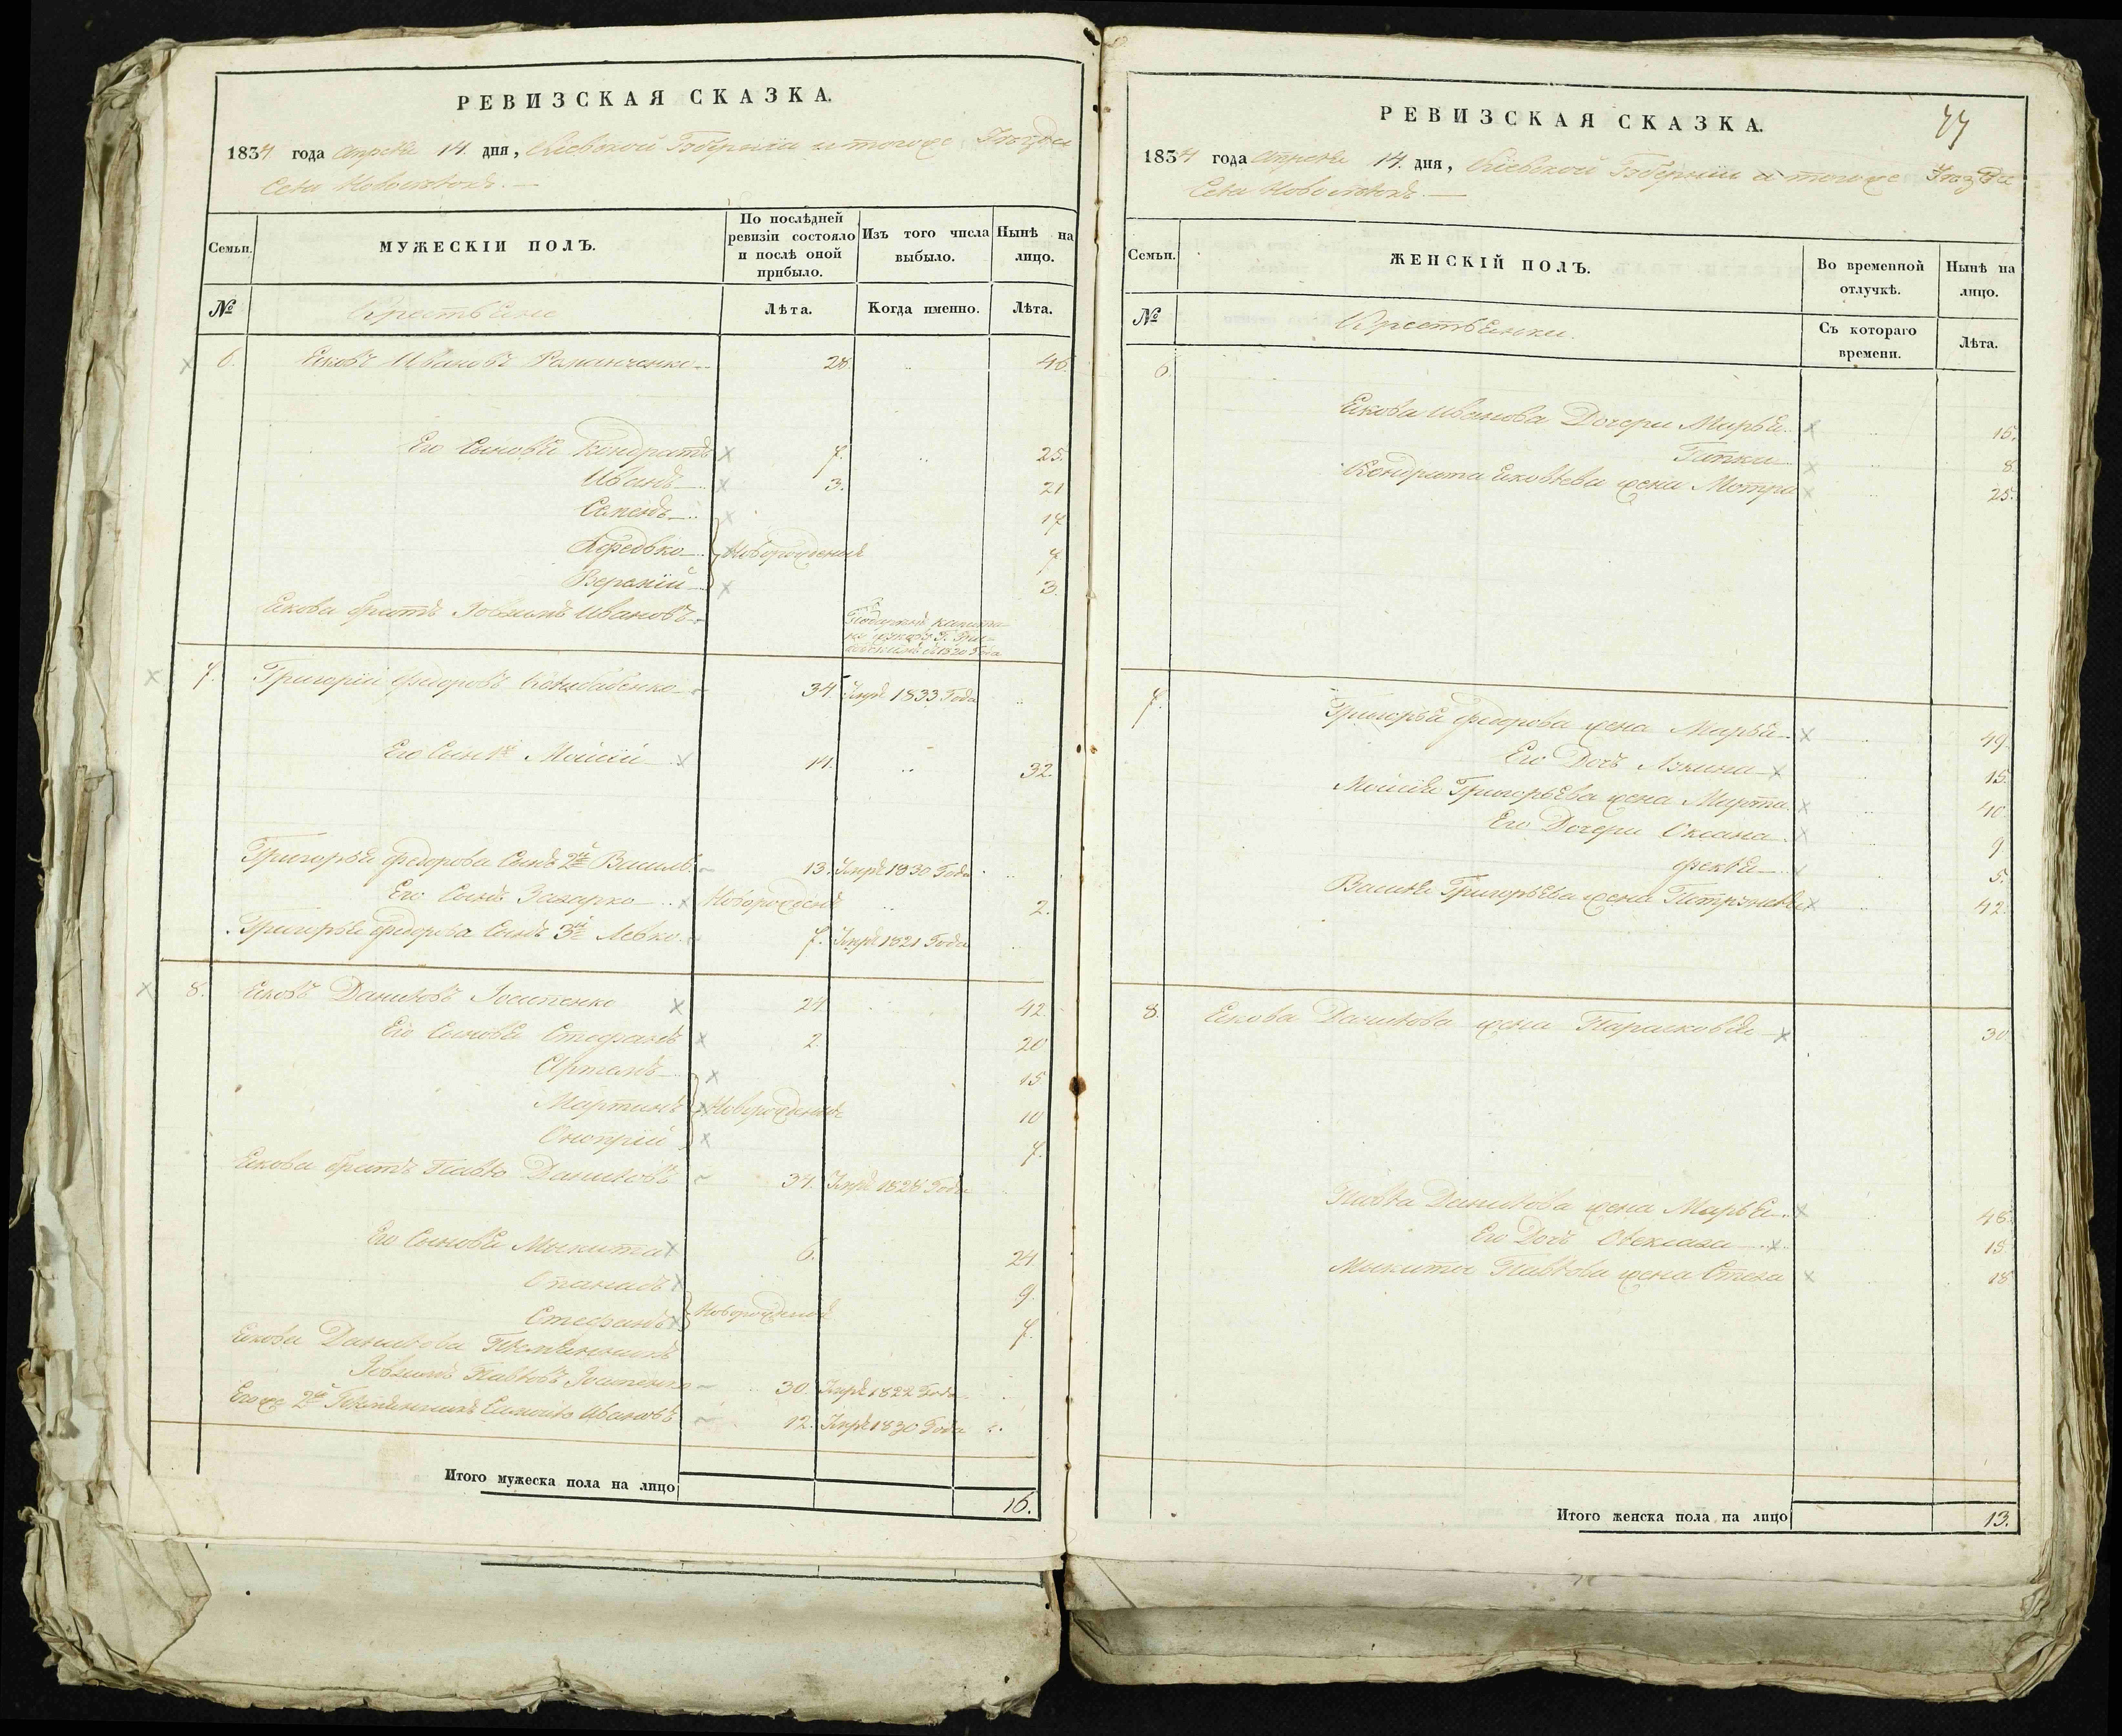 РЕВИЗСКАЯ СКАЗКА.
1834 года Апреля 14. дня, Кіевской Губерніи и тогоже Уѣзда
Села
Семьи.
МУЖЕСКІИ ПОЛЪ.
По послѣдней ревизіи состояло и послѣ оной прибыло.
Изъ того числа выбыло.
Нынѣ на лицо.
№
Крестьяне
Лѣта.
Когда именно.
Лѣта.
6. Яковъ Ивановъ Романченко 28 46.
Его Сыновья Кондратъ 7. 25.
Иванъ 3. 21
Семенъ 17
Новорожденные 7
3.
Якова братъ Ивановъ
1820 Года
7. Григорій Федоровъ 34. Умре 1833 Года
Его Сынъ Мойсій 14. 32.
Григорья Федорова Сынъ 2й Василь 13. Умре 1830 Года
Его Сынъ Захарко Новорожденъ 2.
Григорья Федорова Сынъ 3й Левко 7. Умре 1821 Года
8. Яковъ Даниловъ 24 42.
Его Сыновья Стефанъ 2. 20
Артемъ 15
Мартинъ Новорожденные 10
Онопрій 7.
Якова братъ Павло Даниловъ 34. Умре 1828 Года
Его Сыновья Мыкита 6. 24
Опанасъ 9.
Стефанъ Новорожденные 7.
Якова Данилова Племянникъ
Павловъ 30. Умре 1822 Года
Егоже 2й Племянникъ Самойло Ивановъ 12. Умре 1830 Года
Итого мужеска пола на лицо 16.
РЕВИЗСКАЯ СКАЗКА.
77
1834 года Апреля 14. дня, Кіевской Губерніи и тогоже Уѣзда
Села
Семьи.
ЖЕНСКІЙ ПОЛЪ.
Во временной отлучкѣ.
Нынѣ на лицо.
№
Крестьянки.
Съ котораго времени.
Лѣта.
6
Якова Иванова Дочери Марья 15.
8.
Кондрата Яковлева жена Мотря 25.
7.
Григорья Федорова жена Марья 49.
Его Дочь 15.
Мойсія Григорьева жена Марта 40.
Его Дочери Оксана 9
Фекла 5.
Василя Григорьева жена 42.
8. Якова Данилова жена Парасковья 30
Павла Данилова жена Марья 48.
Его Дочь 15
Мыкиты Павлова жена Стеха 18
Итого женска пола на лицо 13.